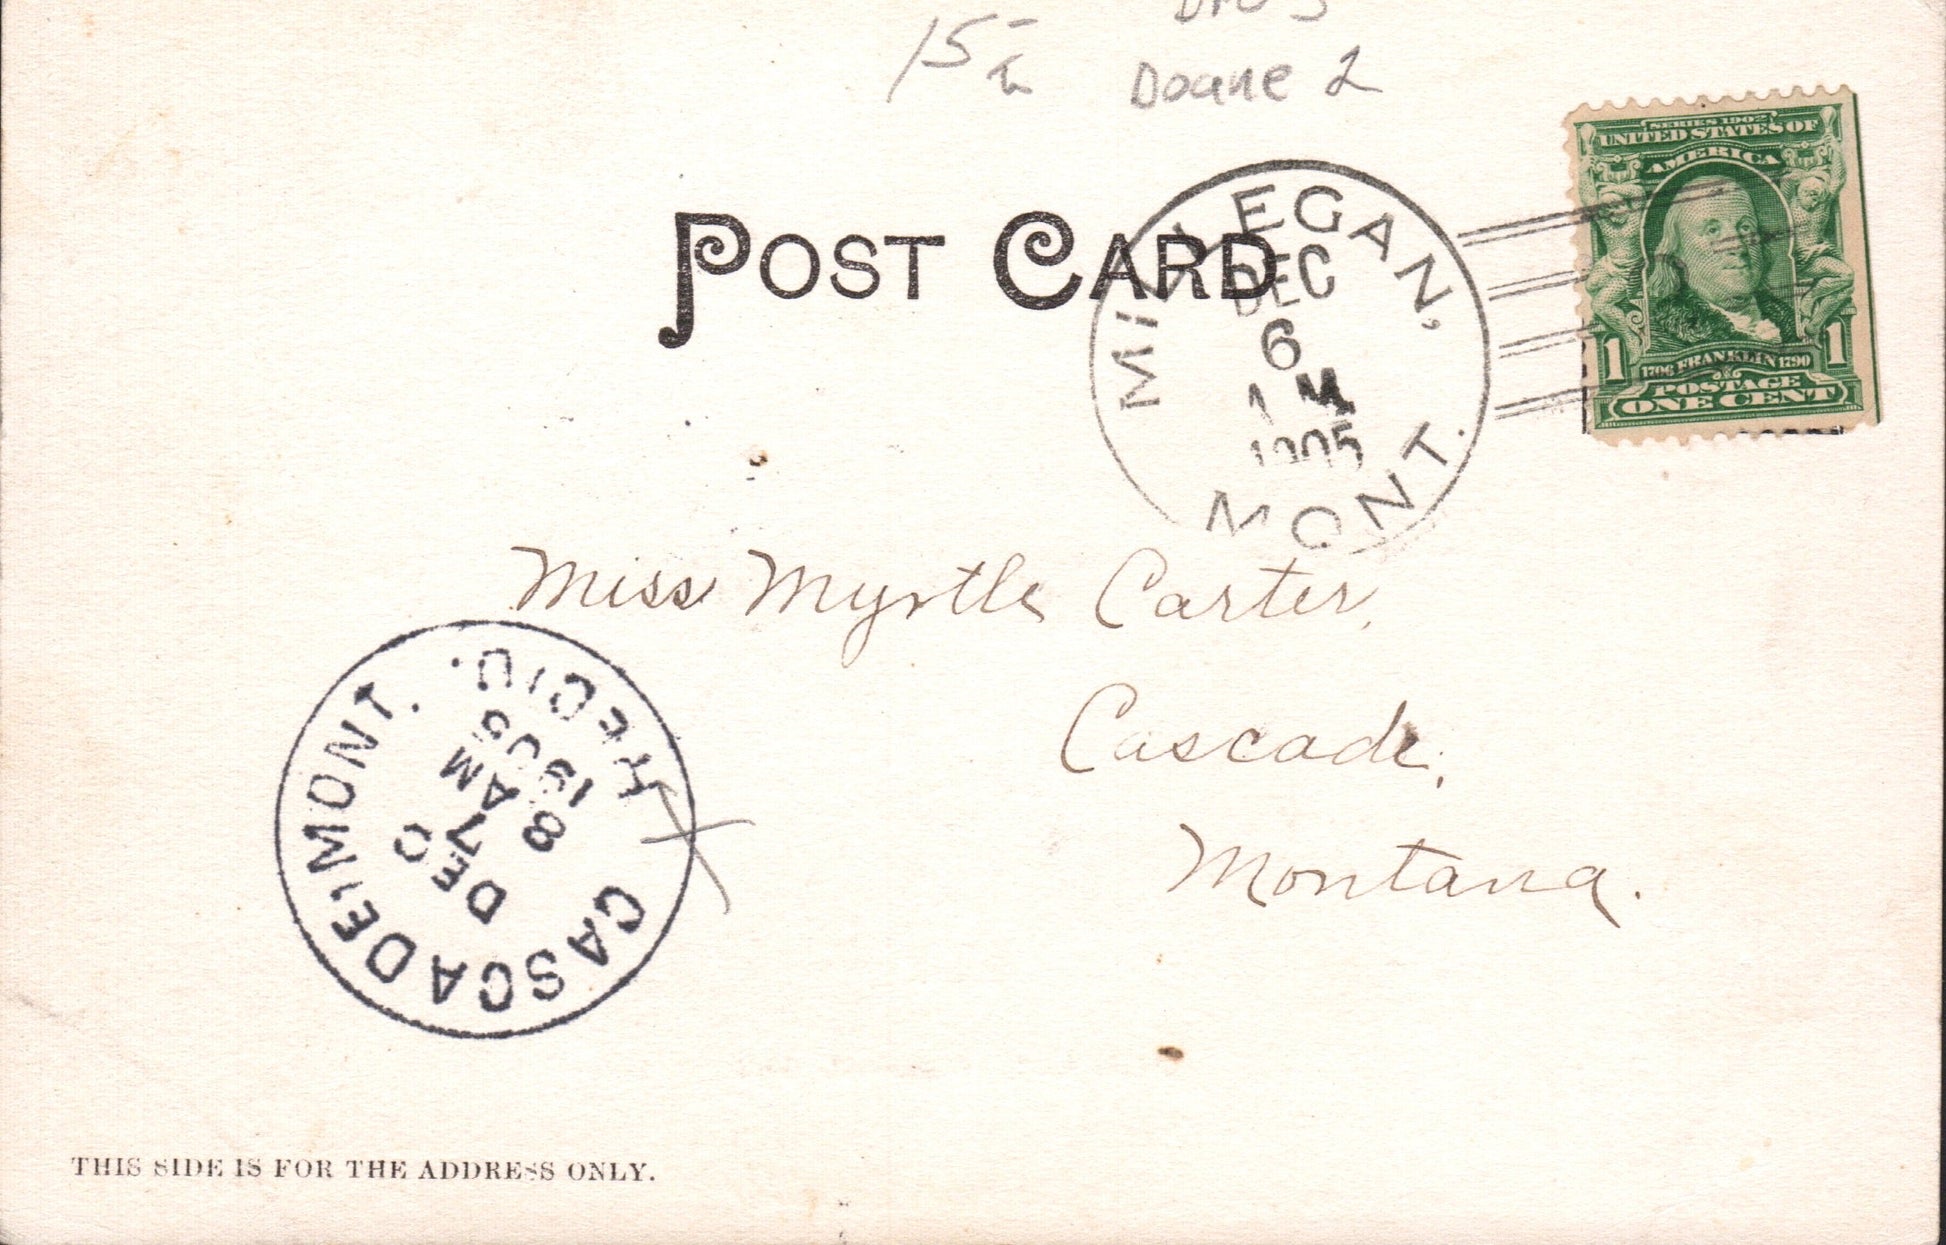 15-
Doane 2
SERIES 1902
UNITED STATES OF
AMERICA
1 1
1706 FRANKLIN 1790
POSTAGE
ONE CENT
POST CARD
MILLEGAN,
DEC
6
M
1905
MONT.
Miss Myrtle Carter,
Cascade,
Montana.
CASCADE, MONT.
REC'D.
DEC
7
8 AM
1905
THIS SIDE IS FOR THE ADDRESS ONLY.